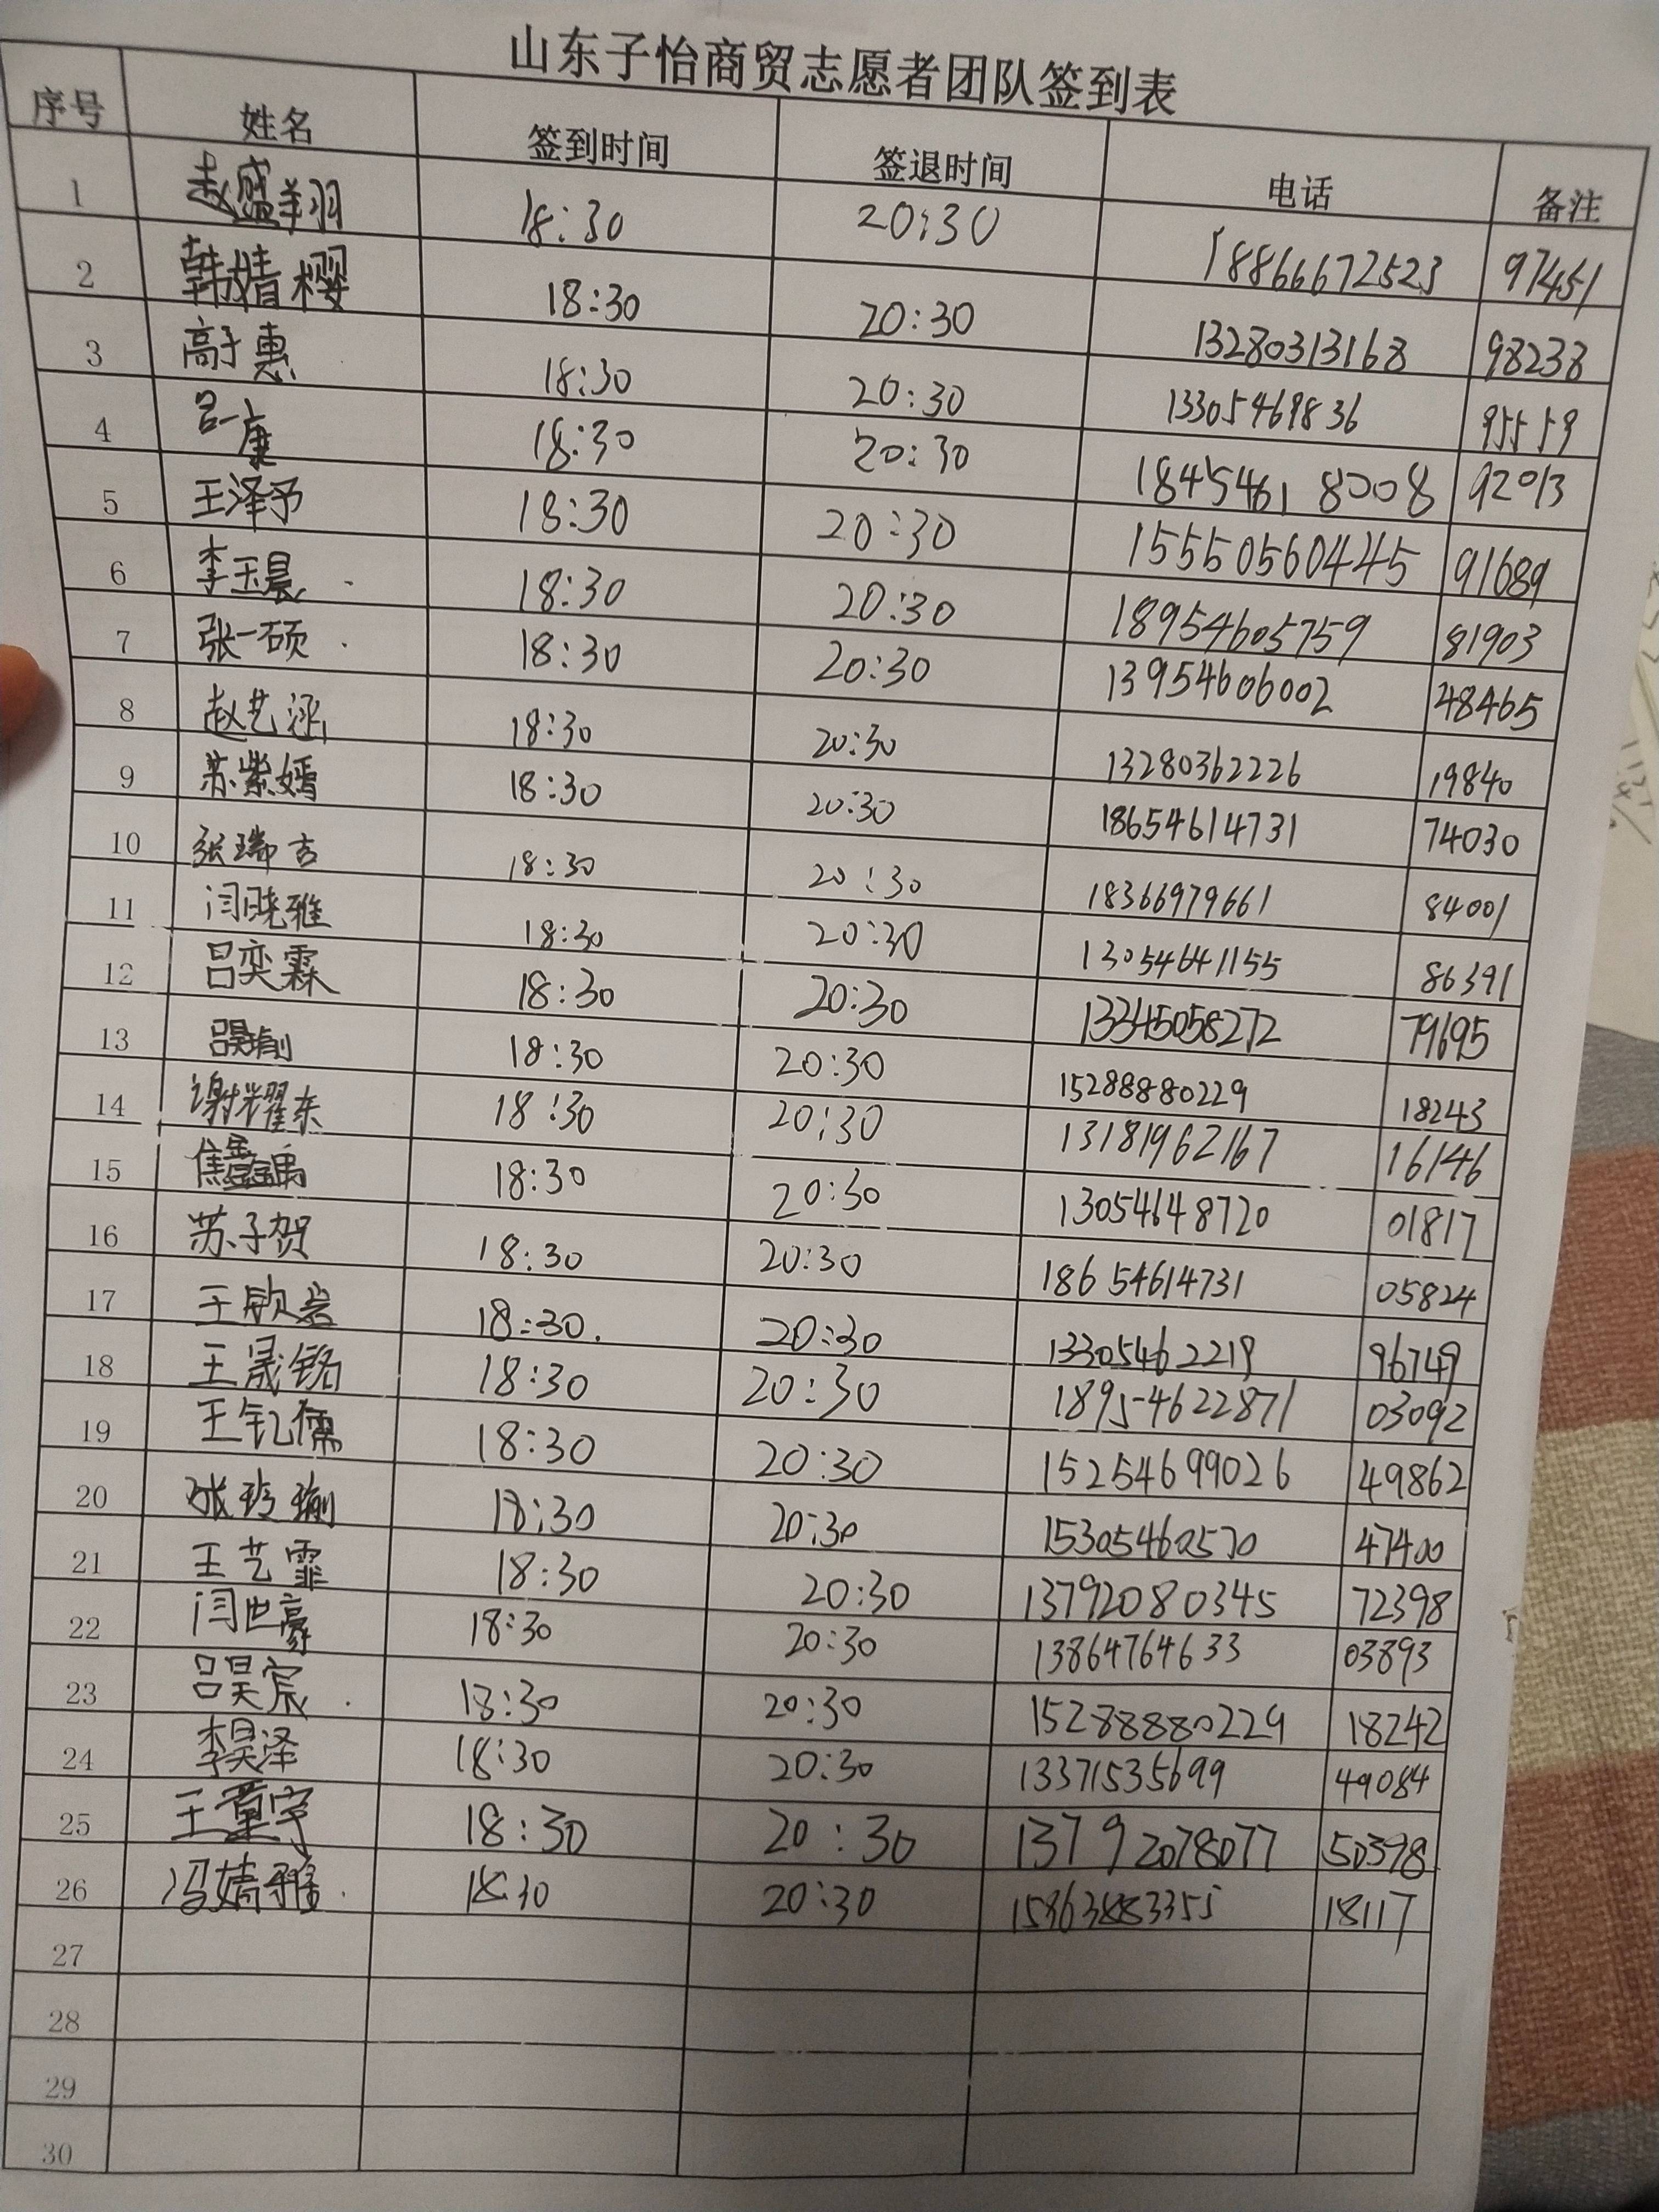 山东子怡商贸志愿者团队签到表
序号 姓名 签到时间 签退时间 电话 备注
1 赵盛翔 18:30 20:30 18866672523 97451
2 韩婧樱 18:30 20:30 13280313168 98238
3 高于惠 18:30 20:30 13305469836 95559
4 吕一康 18:30 20:30 18454618008 92013
5 王泽予 18:30 20:30 15550560445 91689
6 李玉晨 18:30 20:30 18954605759 81903
7 张一硕 18:30 20:30 13954606002 48465
8 赵艺涵 18:30 20:30 13280362226 19840
9 苏紫嫣 18:30 20:30 18654614731 74030
10 张瑞吉 18:30 20:30 18366979661 84001
11 闫晓雅 18:30 20:30 13054641155 86391
12 吕奕霖 18:30 20:30 13345058272 79695
13 18:30 20:30 15288880229 18243
14 谢耀东 18:30 20:30 13181962167 16146
15 18:30 20:30 13054648720 01817
16 苏子贺 18:30 20:30 18654614731 05824
17 王欣岩 18:30. 20:30 13305462219 96749
18 王晟铭 18:30 20:30 18954622871 03092
19 王钇儒 18:30 20:30 15254699026 49862
20 18:30 20:30 15305460570 47400
21 王艺霏 18:30 20:30 13792080345 72398
22 闫世豪 18:30 20:30 13864764633 03893
23 吕昊宸 18:30 20:30 15288880229 18242
24 李昊泽 18:30 20:30 13371535699 49084
25 18:30 20:30 13792078077 50398
26 冯婧雅 18:30 20:30 18117
27
28
29
30